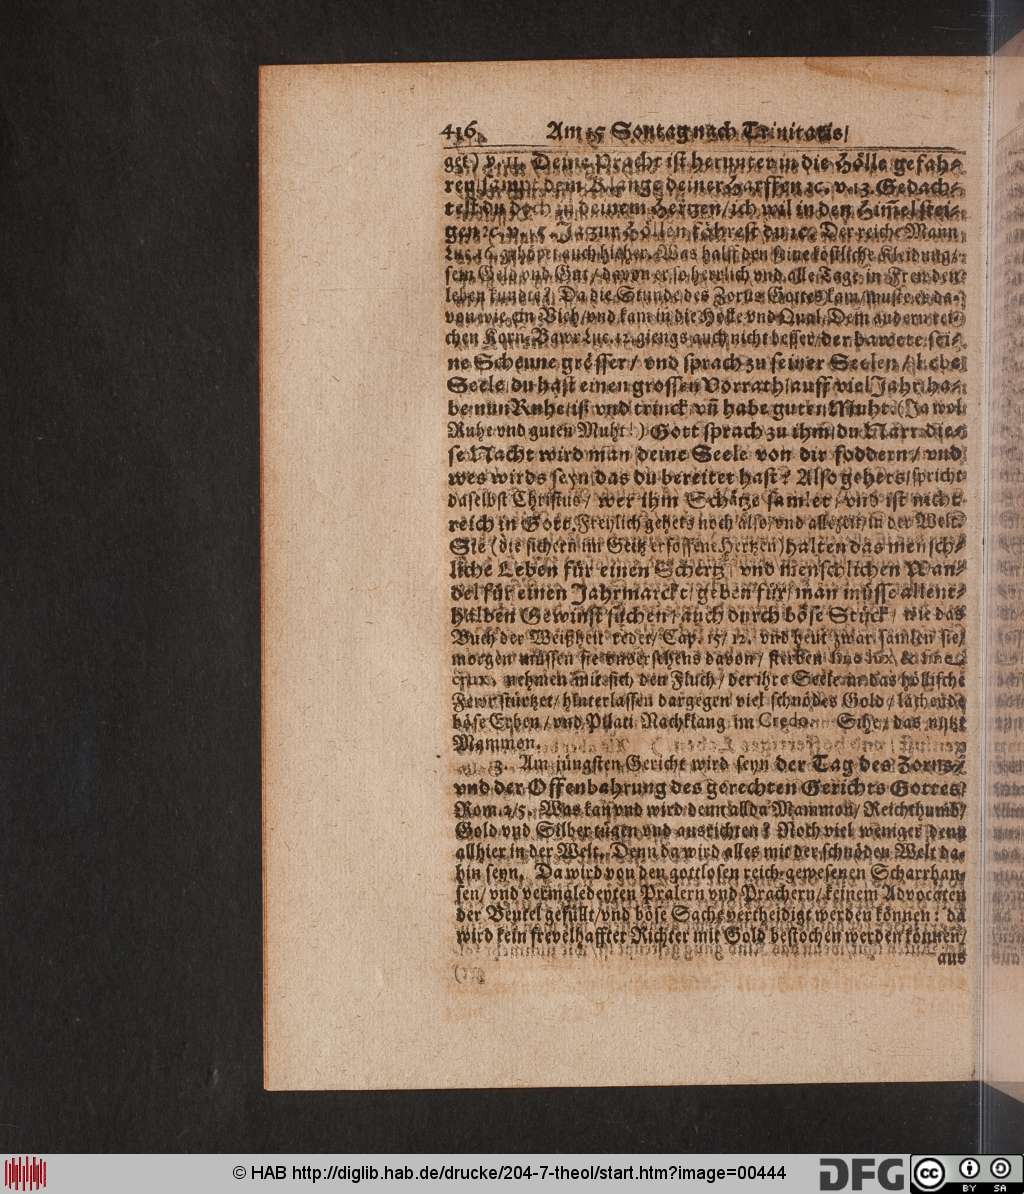 416 Am 15 Sontag nach Trinitatis/
get) v. 11. Deine Pracht ist herunter in die Hölle gefah-
ren/ sampt dem Klange deiner Harffen ꝛc. v. 13. Gedach-
test du doch in deinem Hertzen/ ich wil in den Him̃el stei-
gen ꝛc. v. 15. Ja zur Höllen fährest du ꝛc. Der reiche Mann
Luc. 16. gehöret auch hieher. Was halff den seine köstliche Kleidung/
sein Geld vnd Gut/ davon er so herrlich vnd alle Tage in Freuden
leben kunte? Da die Stunde des Zorns Gottes kam/ muste er da-
von wie ein Vieh/ vnd kam in die Hölle vnd Qual. Dem andern rei-
chen Korn-Bawr Luc. 12. giengs auch nicht besser/ der bawete sei-
ne Scheune grösser/ vnd sprach zu seiner Seelen/ Liebe
Seele/ du hast einen grossen Vorrath auff viel Jahr/ ha-
be nun Ruhe/ iß vnd trinck vñ habe guten Muht. (Ja wol
Ruhe vnd guten Muht!) Gott sprach zu ihm/ du Narr/ die-
se Nacht wird man deine Seele von dir foddern/ vnd
wes wirds seyn/ das du bereitet hast? Also gehets/ spricht
daselbst Christus/ wer ihm Schätze samlet/ vnd ist nicht
reich in Gott. Freylich gehets noch also/ vnd allezeit/ in der Welt.
Sie (die sichern im Geitz ersoffene Hertzen) halten das mensch-
liche Leben für einen Schertz/ vnd menschlichen Wan-
del für einen Jahrmarckt/ geben für/ man müsse allent-
halben Gewinst suchen/ auch durch böse Stück/ wie das
Buch der Weißheit redet/ Cap. 15/ 12. vnd heut zwar samlen sie/
morgen müssen sie vnversehens davon/ sterben sine lux & sine
crux, nehmen mit sich den Fluch/ der ihre Seele in das höllische
Fewr stürtzet/ hinterlassen dargegen viel schnödes Gold/ lachende
böse Erben/ vnd Pilati Nachklang im Credo. Sihe/ das nützt
Mammon.
3. Am jüngsten Gericht wird seyn der Tag des Zorns/
vnd der Offenbahrung des gerechten Gerichts Gottes/
Rom. 2/ 5. Was kan vnd wird denn allda Mammon/ Reichthumb/
Gold vnd Silber tügen vnd ausrichten? Noch viel weniger denn
allhier in der Welt. Denn da wird alles mit der schnöden Welt da-
hin seyn. Da wird von den gottlosen reich-gewesenen Scharrhan-
sen/ vnd vermaledeyten Pralern vnd Prachern/ keinem Advocaten
der Beutel gefüllt/ vnd böse Sache vertheidigt werden können: da
wird kein frevelhaffter Richter mit Gold bestochen werden können/
aus
© HAB http://diglib.hab.de/drucke/204-7-theol/start.htm?image=00444
DFG
cc BY SA